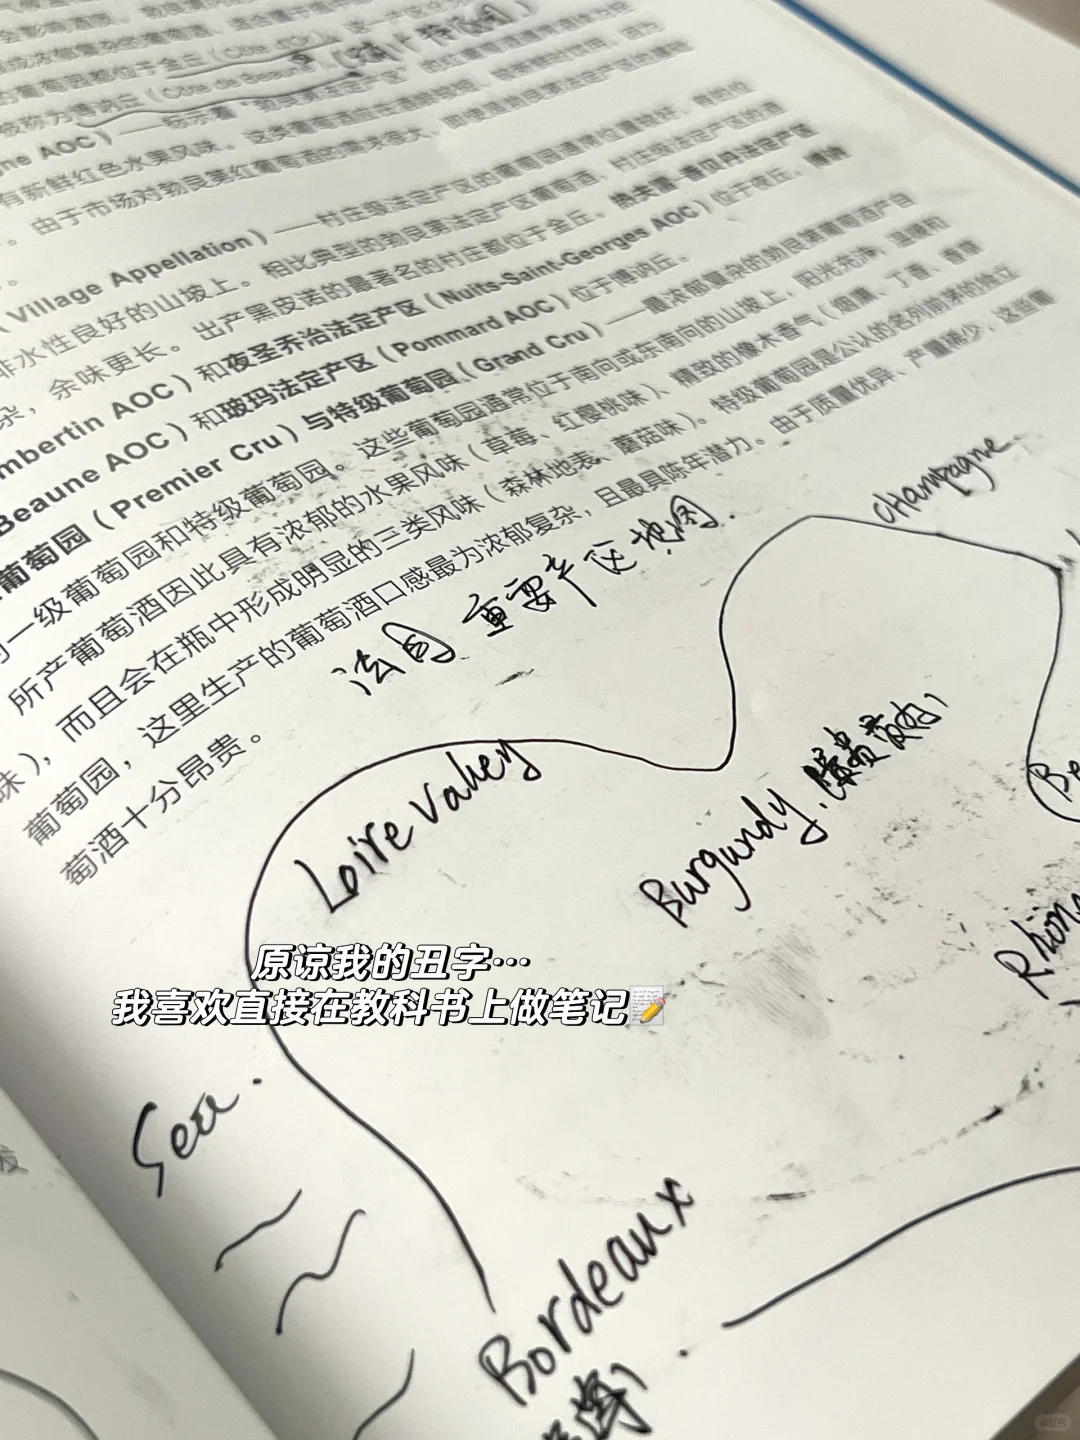 有新鲜红色水果风味。这类葡萄酒应在酒龄较轻
。由于市场对勃艮第红葡萄酒的需求很大，即使是勃艮第法定产区的
（Village Appellation）——村庄级法定产区的葡萄园通常位置较好
排水性良好的山坡上。相比典型的勃艮第法定产区葡萄酒，村庄级法定产区的酒
杂，余味更长。出产黑皮诺的最著名的村庄都位于金丘。热夫雷-香贝丹法定产区
mbertin AOC）和夜圣乔治法定产区（Nuits-Saint-Georges AOC）位于夜丘。博讷
Beaune AOC）和玻玛法定产区（Pommard AOC）位于博讷丘。
葡萄园（Premier Cru）与特级葡萄园（Grand Cru）——最浓郁复杂的勃艮第葡萄酒产自
一级葡萄园和特级葡萄园。这些葡萄园通常位于南向或东南向的山坡上，阳光充沛、温暖和
所产葡萄酒因此具有浓郁的水果风味（草莓、红樱桃味）、精致的橡木香气（烟熏、丁香、香草
味），而且会在瓶中形成明显的三类风味（森林地表、蘑菇味）。特级葡萄园是公认的名列前茅的独立
葡萄园，这里生产的葡萄酒口感最为浓郁复杂，且最具陈年潜力。由于质量优异、产量稀少，这些葡
萄酒十分昂贵。
法国 重要产区地图.
Champagne
Loire Valley
Burgundy.
Be
Rhôn
原谅我的丑字…
我喜欢直接在教科书上做笔记
Sea.
Bordeaux
小红书